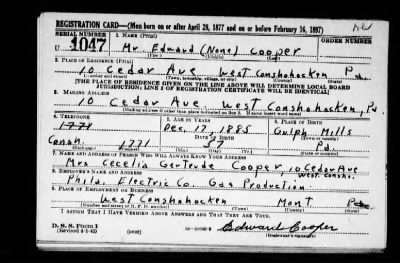 REGISTRATION CARD—(Men born on or after April 28, 1877 and on or before February 16, 1897)
SERIAL NUMBER 1. NAME (Print) ORDER NUMBER
U 1047 Mr. Edward (None) Cooper
(First) (Middle) (Last)
2. PLACE OF RESIDENCE (Print)
10 Cedar Ave West Conshohocken Pa.
(Number and street) (Town, township, village, or city) (County) (State)
[THE PLACE OF RESIDENCE GIVEN ON THE LINE ABOVE WILL DETERMINE LOCAL BOARD
JURISDICTION; LINE 2 OF REGISTRATION CERTIFICATE WILL BE IDENTICAL]
3. MAILING ADDRESS
10 Cedar Ave West Conshohocken, Pa.
[Mailing address if other than place indicated on line 2. If same insert word same]
4. TELEPHONE 5. AGE IN YEARS 6. PLACE OF BIRTH
1771 Dec. 17, 1885 Gulph Mills
DATE OF BIRTH
Consh. 1771 57 Pa.
7. NAME AND ADDRESS OF PERSON WHO WILL ALWAYS KNOW YOUR ADDRESS
Mrs Cecelia Gertrude Cooper, 10 Cedar Ave
West Consho.
8. EMPLOYER'S NAME AND ADDRESS
Phila. Electric Co. Gas Production
9. PLACE OF EMPLOYMENT OR BUSINESS
West Conshohocken Mont Pa.
(Number and street or R. F. D. number) (Town) (County) (State)
I AFFIRM THAT I HAVE VERIFIED ABOVE ANSWERS AND THAT THEY ARE TRUE.
D. S. S. Form 1
(Revised 4-1-42) (over) Edward Cooper
(Registrant's signature)